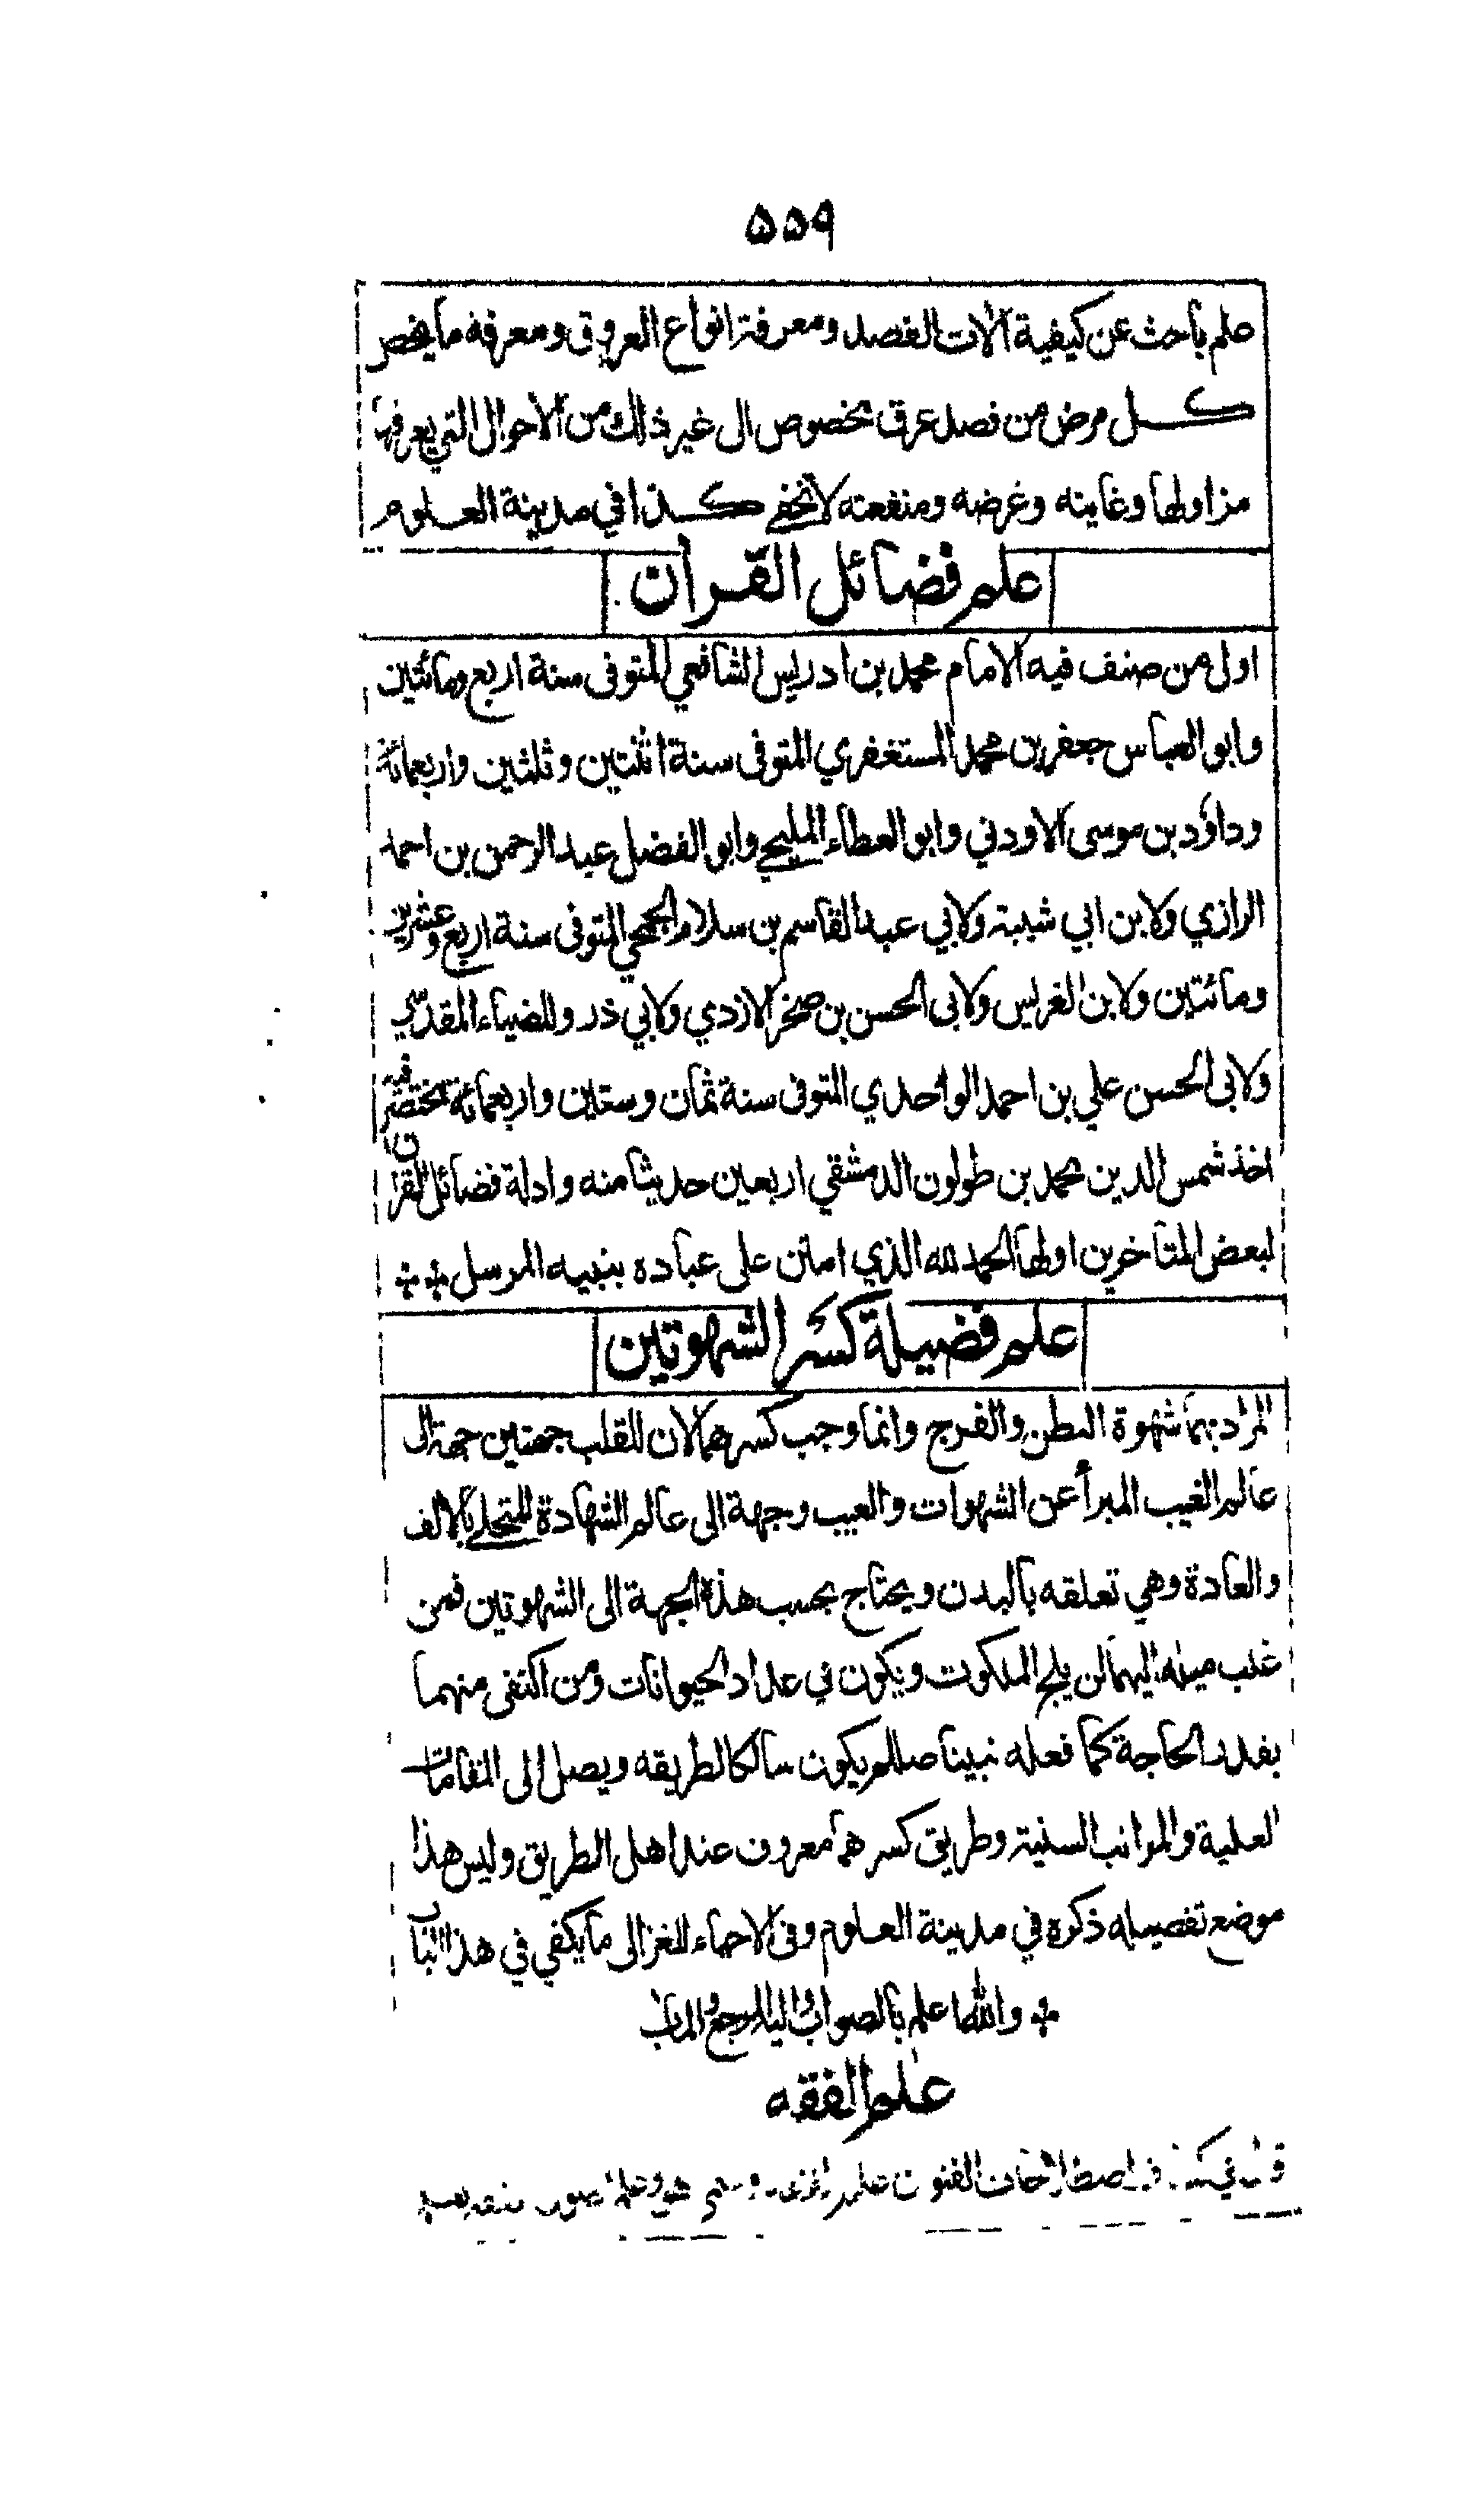 ۵۵۹
علم باحث عن كيفية آلات الفصد ومعرفة انواع العروق ومعرفة ما يخص
كل مرض من فصد عرق بخصوص الى غير ذلك من الاحوال التي يعرفها
مزاولها وغايته وغرضه ومنفعته لا تخفى كذا في مدينة العلوم
علم فضائل القرآن
اول من صنف فيه الامام محمد بن ادريس الشافعي المتوفى سنة اربع ومائتين
وابو العباس جعفر بن محمد المستغفري المتوفى سنة اثنتين وثلثين واربعمائة
وداؤد بن موسى الاودني وابو العطاء المليحي وابو الفضل عبد الرحمن بن احمد
الرازي ولابن ابي شيبة ولابي عبد القاسم بن سلام الجمحي المتوفى سنة اربع وعشرين
ومائتين ولابن الغريس ولابى الحسن بن صخر الازدي ولابي ذر وللضياء المقدسي
ولابى الحسن علي بن احمد الواحدي المتوفى سنة ثمان وستين واربعمائة مختصر فيه
اخذ شمس الدين محمد بن طولون الدمشقي اربعين حديثا منه وادلة فضائل القران
لبعض المتاخرين اولها الحمد لله الذي امتن على عباده بنبيه المرسل
علم فضيلة كسر الشهوتين
المراد بهما شهوة البطن والفرج وانما وجب كسرهما لان للقلب جهتين جهة الى
عالم الغيب المبرأ عن الشهوات والعيب وجهة الى عالم الشهادة المتحلي بالالف
والعادة وهي تعلقه بالبدن ويحتاج بحسب هذه الجهة الى الشهوتين فمن
غلب ميله اليهما لن يلج الملكوت ويكون في عداد الحيوانات ومن اكتفى منهما
بقدر الحاجة كما فعله نبينا صللم يكون سالكا لطريقه ويصل الى المقامات
العلية والمراتب السنية وطريق كسرهما معروف عند اهل الطريق وليس هذا
موضع تفصيله ذكره في مدينة العلوم وفى الاحياء للغزالى ما يكفي في هذا الباب
والله اعلم بالصواب واليه المرجع والمآب
علم الفقه
قال في كشاف اصطلاحات الفنون علم الفقه